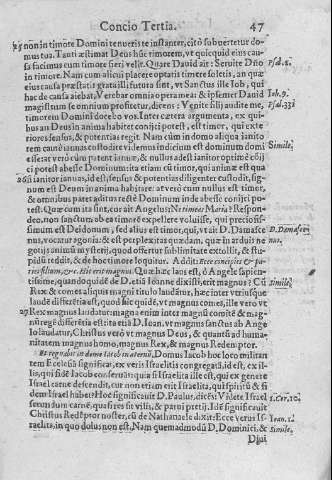 Concio Tertia. 47
25 non in timore Domini tenueris te instanter, citò subuertetur do-
mus tua. Tanti æstimat Deus hũc timorem, vt quicquid eius cau-
sa facimus cum timore fieri velit. Quare Dauid ait: Seruite Dño Psal. 2.
in timore. Nam cum alicui placere optatis timere soletis, an quæ
eius causa præstatis gratuiti, futura sint, vt Sanctus ille Iob, qui
hac de causa aiebat, Verebar omnia opera mea: & ipsemet Dauid Iob. 9.
magistrum se omnium profitetur, dicens: Venite filij audite me, Psal. 33.
timorem Domini docebo vos. Inter cætera argumenta, ex qui-
bus an Deus in anima habitet conijci potest, est timor, qui exte-
riores sensus, & potentias regit. Nam cùm in domo aliqua ianito
rem cautè ianuas custodire videmus indicium est dominum domi Simile.
esse: at verò cùm patent ianuæ, & nullus adest ianitor optimè cõij
ci potest abesse Dominum: ita etiam cũ timor, qui animæ est qua
26 si ianitor ianuas, id est, sensus & potentias diligenter custodit, sig-
num est Deum in anima habitare: at verò cum nullus est timor,
& omnibus patet aditus rectè Dominum inde abesse conijci po-
test. Quæ cum ita sint, cur ait Angelus: Ne timeas Maria? Respon-
deo, non sanctum ob te timorem expellere voluisse, qui preciosis-
simum est Dei donum, sed alius est timor, qui, vt ait D. Damasce D. Damasce
nus, vocatur agonia: & est perplexitas quædam, quæ in arduis ne nus.
gotijs animũ mysterij, quod offertur sublimitate extollit, & stu-
pidũ reddit, & de hoc timore loquitur. Addit: Ecce concipies & pa-
ries filium, &c. Hic erit magnus. Quæ hæc laus est, ô Angele sapien-
tissime, quandoquidẽ de D. etiã Ioanne dixisti, erit magnus? Cũ Simile.
Rex & comes aliquis magni titulo laudãtur, hæc inter vtriusque
laudẽ differentia est, quòd hic quidẽ, vt magnus comes, ille verò vt
27 Rex magnus laudatur: magna enim inter magnũ comitẽ & mag-
nũ regẽ differẽtia est: ita etiã D. Ioan. vt magnus sanctus ab Ange
lo laudatur, Christus verò vt magnus Deus, & quantũ ad huma-
nitatem magnus homo, magnus Rex, & magnus Redemptor.
Et regnabit in domo Iacob in æternũ, Domus Iacob hoc loco militan
tem Ecclesiã significat, ex veris Israelitis congregatã, id est, ex il-
lis, qui fidẽ Iacob conseruãt: quia si Israelita ille est, qui ex genere
Israel carne descendit, cur non etiam erit Israelita, qui spiritũ & fi
dem Israel habet? Hoc significauit D. Paulus, dicẽs: Videte Israel 1. Cor. 10.
secundum carnẽ, quasi res sit vilis, & parui pretij. Idẽ significauit
Christus Redẽptor noster, cũ de Nathanaele dixit: Ecce verus Is- Ioan. 1.
raelita, in quo dolus non est. Nam quemadmodũ D. Dominici, & Simile.
Diui